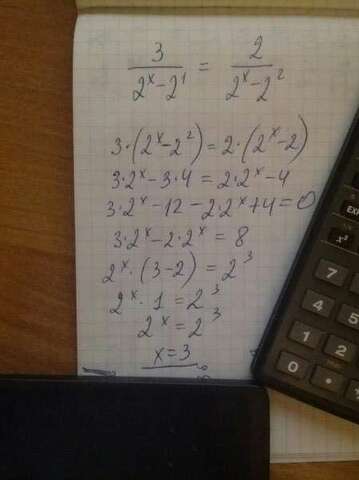 3/(2ˣ-2¹) = 2/(2ˣ-2²)
3·(2ˣ-2²)=2·(2ˣ-2)
3·2ˣ-3·4=2·2ˣ-4
3·2ˣ-12-2·2ˣ+4=0
3·2ˣ-2·2ˣ=8
2ˣ·(3-2)=2³
2ˣ·1=2³
2ˣ=2³
x=3
x³
7
4
1
2
0
·